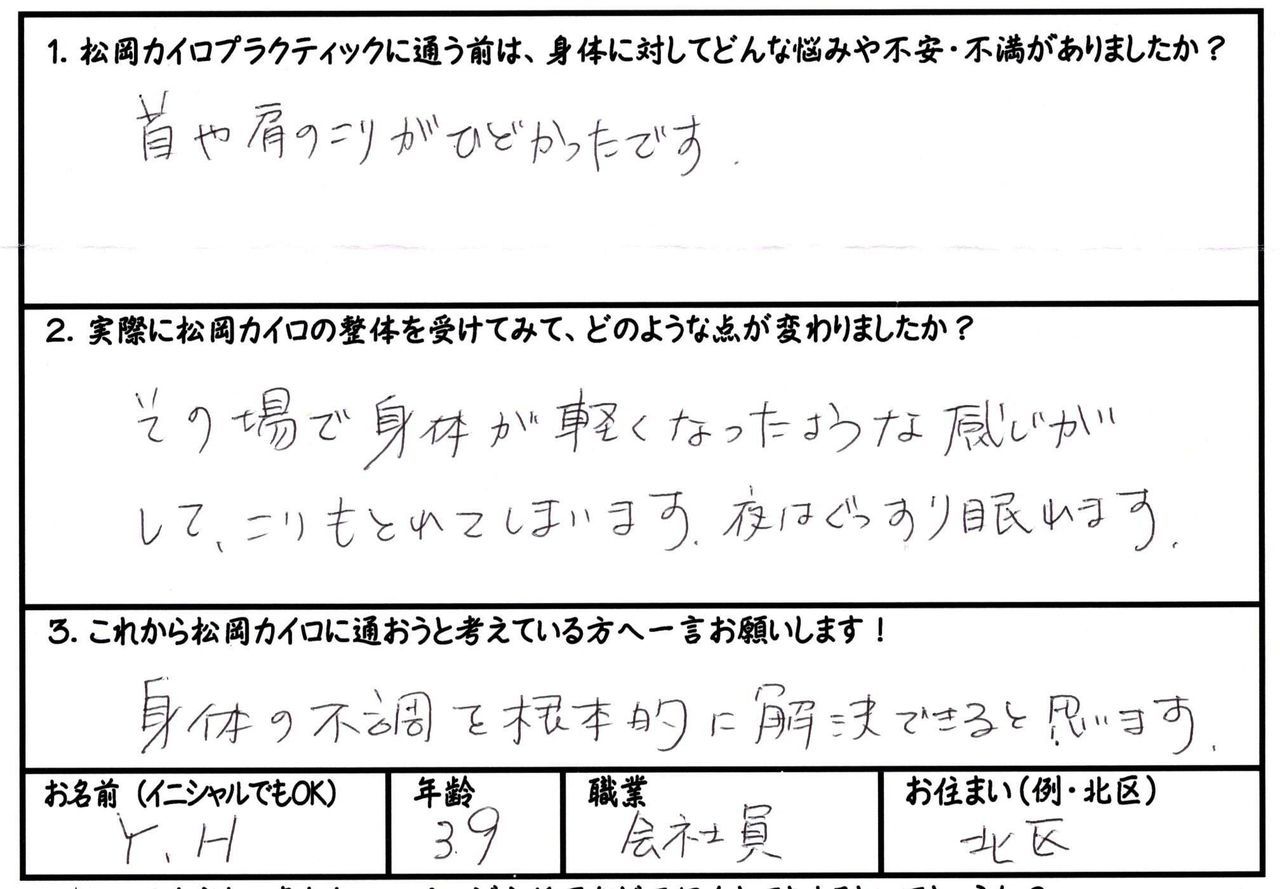 1. 松岡カイロプラクティックに通う前は、身体に対してどんな悩みや不安・不満がありましたか？
首や肩のこりがひどかったです.
2. 実際に松岡カイロの整体を受けてみて、どのような点が変わりましたか？
その場で身体が軽くなったような感じが
して、こりもとれてしまいます. 夜はぐっすり眠れます.
3. これから松岡カイロに通おうと考えている方へ一言お願いします！
身体の不調を根本的に解決できると思います.
お名前（イニシャルでもOK） 年齢 職業 お住まい（例・北区）
Y.H 39 会社員 北区